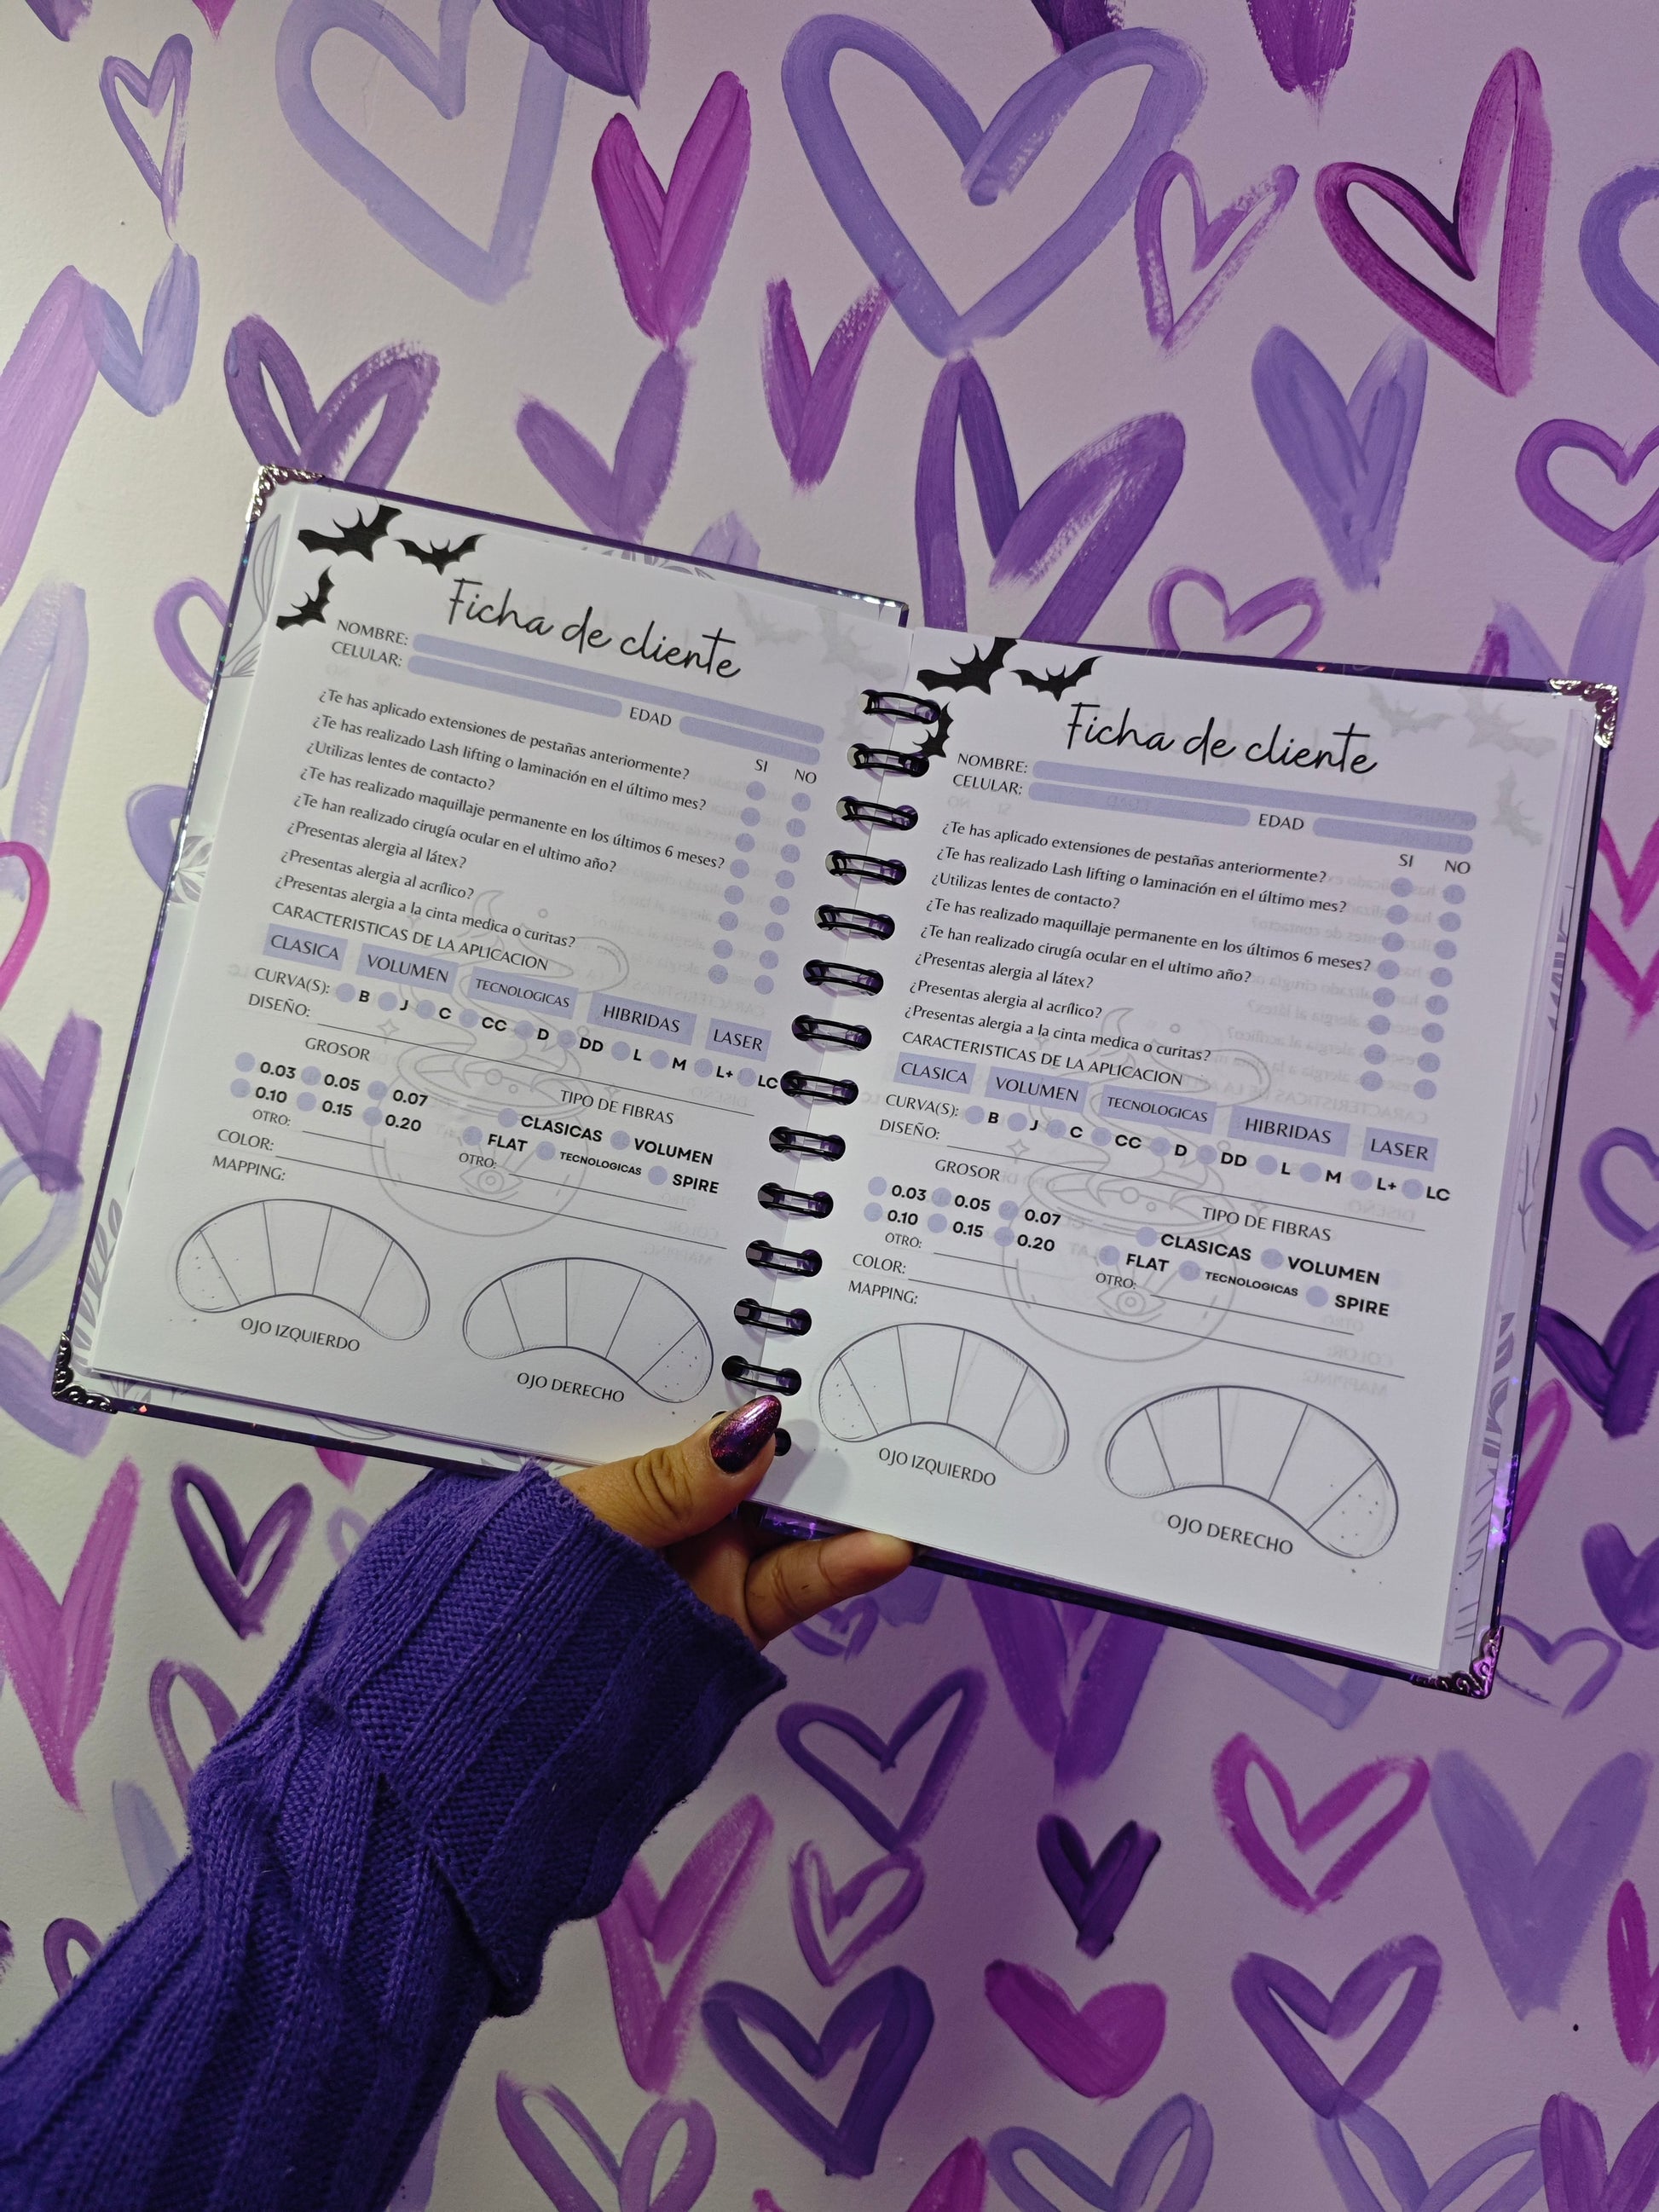 Ficha de cliente
NOMBRE:
CELULAR: EDAD
SI NO
¿Te has aplicado extensiones de pestañas anteriormente?
¿Te has realizado Lash lifting o laminación en el último mes?
¿Utilizas lentes de contacto?
¿Te has realizado maquillaje permanente en los últimos 6 meses?
¿Te han realizado cirugía ocular en el ultimo año?
¿Presentas alergia al látex?
¿Presentas alergia al acrílico?
¿Presentas alergia a la cinta medica o curitas?
CARACTERISTICAS DE LA APLICACION
CLASICA VOLUMEN TECNOLOGICAS HIBRIDAS LASER
CURVA(S): B J C CC D DD L M L+ LC
DISEÑO:
GROSOR
0.03 0.05 0.07
0.10 0.15 0.20
OTRO:
TIPO DE FIBRAS
CLASICAS VOLUMEN
FLAT TECNOLOGICAS SPIRE
OTRO:
COLOR:
MAPPING:
OJO IZQUIERDO
OJO DERECHO
Ficha de cliente
NOMBRE:
CELULAR: EDAD
SI NO
¿Te has aplicado extensiones de pestañas anteriormente?
¿Te has realizado Lash lifting o laminación en el último mes?
¿Utilizas lentes de contacto?
¿Te has realizado maquillaje permanente en los últimos 6 meses?
¿Te han realizado cirugía ocular en el ultimo año?
¿Presentas alergia al látex?
¿Presentas alergia al acrílico?
¿Presentas alergia a la cinta medica o curitas?
CARACTERISTICAS DE LA APLICACION
CLASICA VOLUMEN TECNOLOGICAS HIBRIDAS LASER
CURVA(S): B J C CC D DD L M L+ LC
DISEÑO:
GROSOR
0.03 0.05 0.07
0.10 0.15 0.20
OTRO:
TIPO DE FIBRAS
CLASICAS VOLUMEN
FLAT TECNOLOGICAS SPIRE
OTRO:
COLOR:
MAPPING:
OJO IZQUIERDO
OJO DERECHO